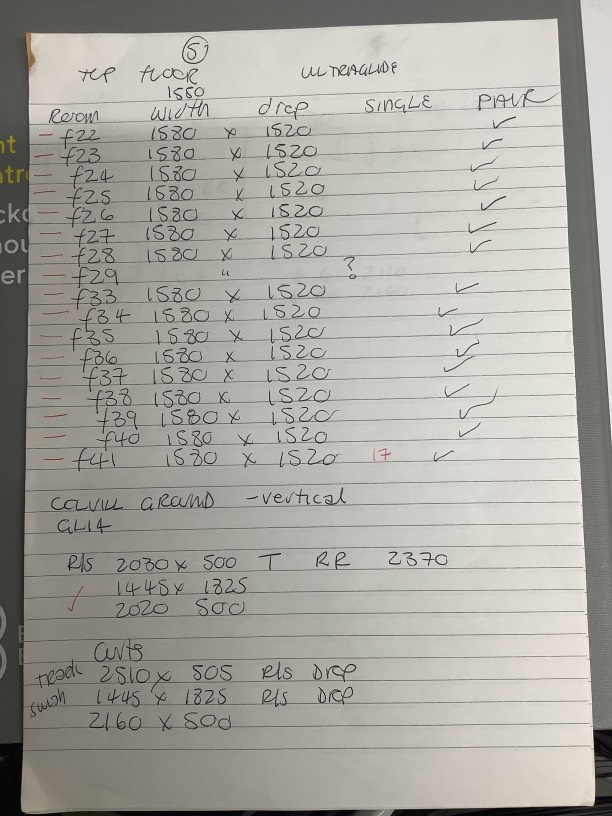 ⑤
TOP FLOOR ULTRAGLIDE
1550
Room width drop SINGLE PAIR
- f22 1580 x 1520 ✓
- f23 1580 x 1520 ✓
- f24 1580 x 1520 ✓
- f25 1580 x 1520 ✓
- f26 1580 x 1520 ✓
- f27 1580 x 1520 ✓
- f28 1580 x 1520 ✓
- f29 " ?
- f33 1580 x 1520 ✓
- f34 1580 x 1520 ✓
- f35 1580 x 1520 ✓
- f36 1580 x 1520 ✓
- f37 1580 x 1520 ✓
- f38 1580 x 1520 ✓
- f39 1580 x 1520 ✓
- f40 1580 x 1520 ✓
- f41 1580 x 1520 17 ✓
COLVILL GROUND - vertical
GL14
R/s 2030 x 500 T RR 2370
1445 x 1825
✓ 2020 500
Curts
2510 x 505 R/s Drop
1445 x 1825 R/s Drop
2160 x 500